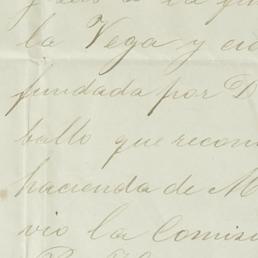 la Vega y
fundada por D
ballo que recon
hacienda de M
vio la Comis